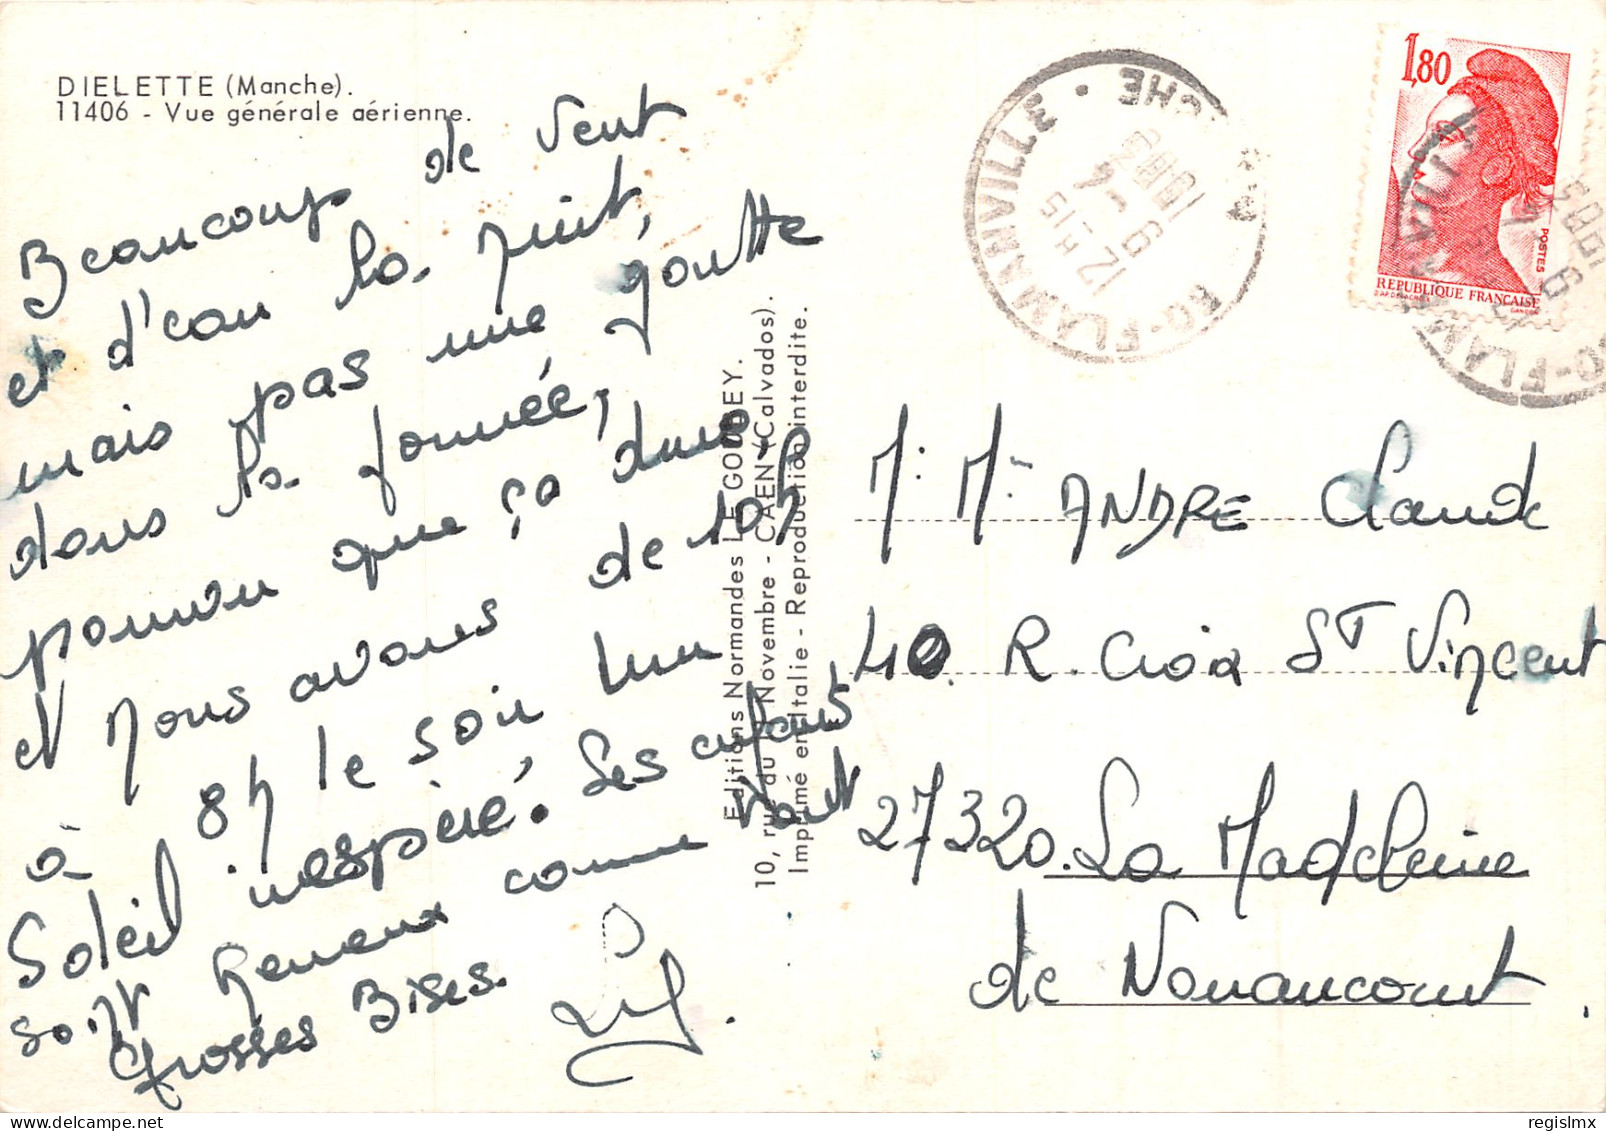 DIELETTE (Manche).
11406 - Vue générale aérienne.
Beaucoup de vent
et d'eau la nuit,
mais pas une goutte
dans la journée,
pourvu que ça dure
et nous avons de 10h
à 8h le soir un
Soleil inespéré. Les enfants
sont heureux comme tout
Grosses Bises.
Editions Normandes LE GOUBEY.
10, rue du 11 Novembre - CAEN (Calvados).
Imprimé en Italie - Reproduction interdite.
50-FLAMANVILLE
12H15
6-
1,80
POSTES
REPUBLIQUE FRANÇAISE
GANDON
M. Me ANDRE Claude
40 R. Croix ST Vincent
27320. La Madeleine
de Nonancourt
regislmx